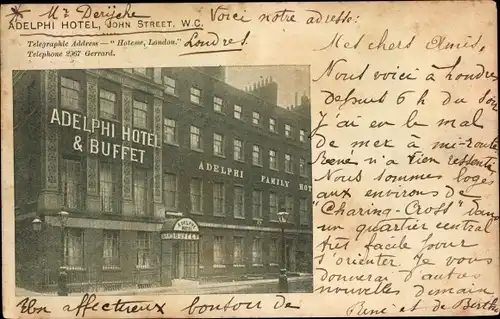 * Mr Derijcke Voici notre adresse:
ADELPHI HOTEL, JOHN STREET, W.C.
Telegraphic Address — "Hotesse, London." Londres.
Telephone 2967 Gerrard.
ADELPHI HOTEL
& BUFFET
ADELPHI FAMILY HOT
ADELPHI
HOTEL
BUFFET
Mes chers Amis,
Nous voici à Londres
depuis 6 h du soir
J'ai eu le mal
de mer à mi-route
René n'a rien ressenti
Nous sommes logés
aux environs de
"Charing-Cross" dans
un quartier central
très facile pour
s'orienter Je vous
donnerai d'autres
nouvelles demain
Un affectueux bonsoir de René et de Berthe